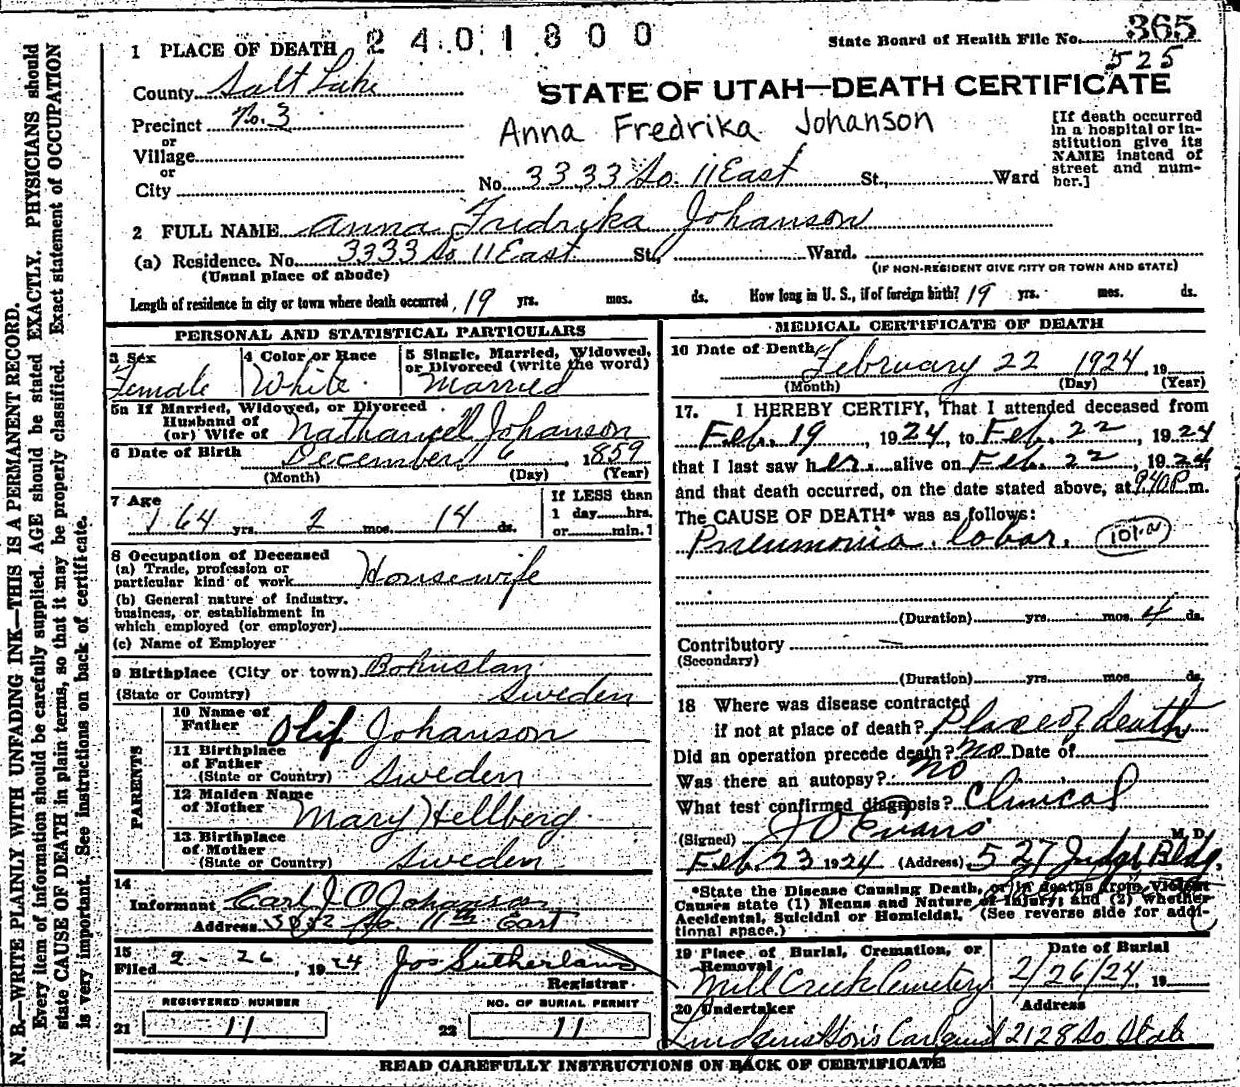 N. B.—WRITE PLAINLY WITH UNFADING INK—THIS IS A PERMANENT RECORD.
Every item of information should be carefully supplied. AGE should be stated EXACTLY. PHYSICIANS should
state CAUSE OF DEATH in plain terms, so that it may be properly classified. Exact statement of OCCUPATION
is very important. See instructions on back of certificate.
2401800
State Board of Health File No. 365
525
1 PLACE OF DEATH
County Salt Lake
STATE OF UTAH—DEATH CERTIFICATE
Precinct No. 3
Anna Fredrika Johanson
[If death occurred
in a hospital or in-
stitution give its
NAME instead of
street and num-
ber.]
or
Village
or
City
No. 3333 So. 11 East St., Ward
2 FULL NAME Anna Fredrika Johanson
(a) Residence. No. 3333 So 11 East St., Ward.
(Usual place of abode) (IF NON-RESIDENT GIVE CITY OR TOWN AND STATE)
Length of residence in city or town where death occurred 19 yrs. mos. ds. How long in U. S., if of foreign birth? 19 yrs. mos. ds.
PERSONAL AND STATISTICAL PARTICULARS
3 Sex 4 Color or Race 5 Single, Married, Widowed,
or Divorced (write the word)
Female White Married
5a If Married, Widowed, or Divorced
Husband of
(or) Wife of Nathanael Johanson
6 Date of Birth December 6, 1859
(Month) (Day) (Year)
7 Age
64 yrs. 2 mos. 14 ds.
If LESS than
1 day hrs.
or min.?
8 Occupation of Deceased
(a) Trade, profession or
particular kind of work Housewife
(b) General nature of industry,
business, or establishment in
which employed (or employer)
(c) Name of Employer
9 Birthplace (City or town) Bohuslan
(State or Country) Sweden
PARENTS
10 Name of
Father Olif Johanson
11 Birthplace
of Father
(State or Country) Sweden
12 Maiden Name
of Mother Mary Hellberg
13 Birthplace
of Mother
(State or Country) Sweden
14
Informant Carl J O Johanson
Address So. 11th East
15
Filed 2-26, 1924 Jos Sutherland
Registrar
REGISTERED NUMBER NO. OF BURIAL PERMIT
21 11 22 11
MEDICAL CERTIFICATE OF DEATH
16 Date of Death February 22 1924, 19
(Month) (Day) (Year)
17. I HEREBY CERTIFY, That I attended deceased from
Feb. 19, 1924, to Feb. 22, 1924
that I last saw her alive on Feb. 22, 1924,
and that death occurred, on the date stated above, at 9:40 P m.
The CAUSE OF DEATH* was as follows:
Pneumonia, lobar. 101-a
(Duration) yrs. mos. 4 ds.
Contributory
(Secondary)
(Duration) yrs. mos. ds.
18 Where was disease contracted
if not at place of death? Place of death
Did an operation precede death? No Date of
Was there an autopsy? No
What test confirmed diagnosis? Clinical
(Signed) J O Evans M. D.
Feb. 23 1924 (Address) 527 Judge Bldg.
*State the Disease Causing Death, or in deaths from Violent
Causes state (1) Means and Nature of Injury; and (2) whether
Accidental, Suicidal or Homicidal. (See reverse side for addi-
tional space.)
19 Place of Burial, Cremation, or
Removal
Date of Burial
Mill Creek Cemetery 2/26/24, 19
20 Undertaker Address
2128 So State
READ CAREFULLY INSTRUCTIONS ON BACK OF CERTIFICATE